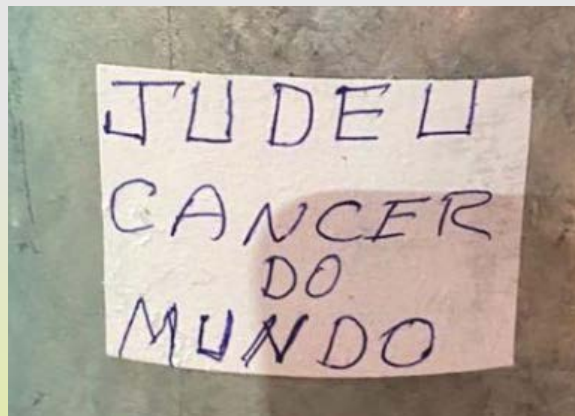 JUDEU
CANCER
DO
MUNDO